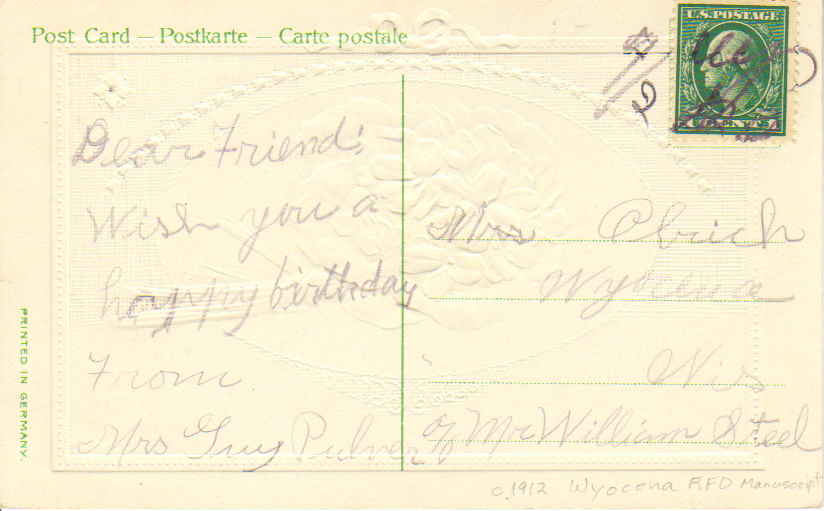 Post Card — Postkarte — Carte postale
U.S. POSTAGE
Dear Friend:
Wish you a
happy birthday
From
Mrs Guy Pulver
Mrs. Olrich
Wyocena
Wis
% Mr William Steel
PRINTED IN GERMANY.
c.1912 Wyocena RFD Manuscript